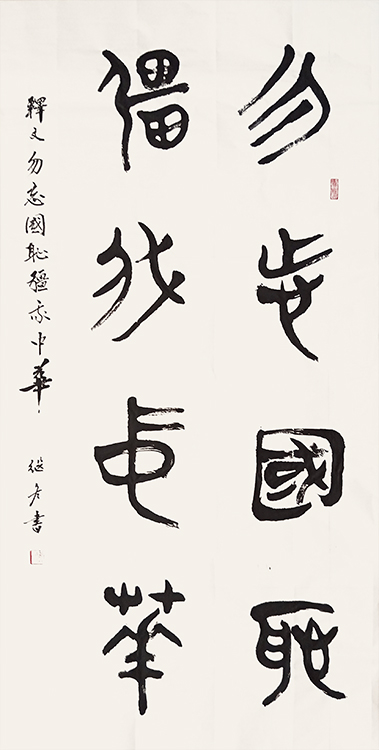 勿忘國恥
彊我中華
釋文勿忘國恥彊我中華！
書